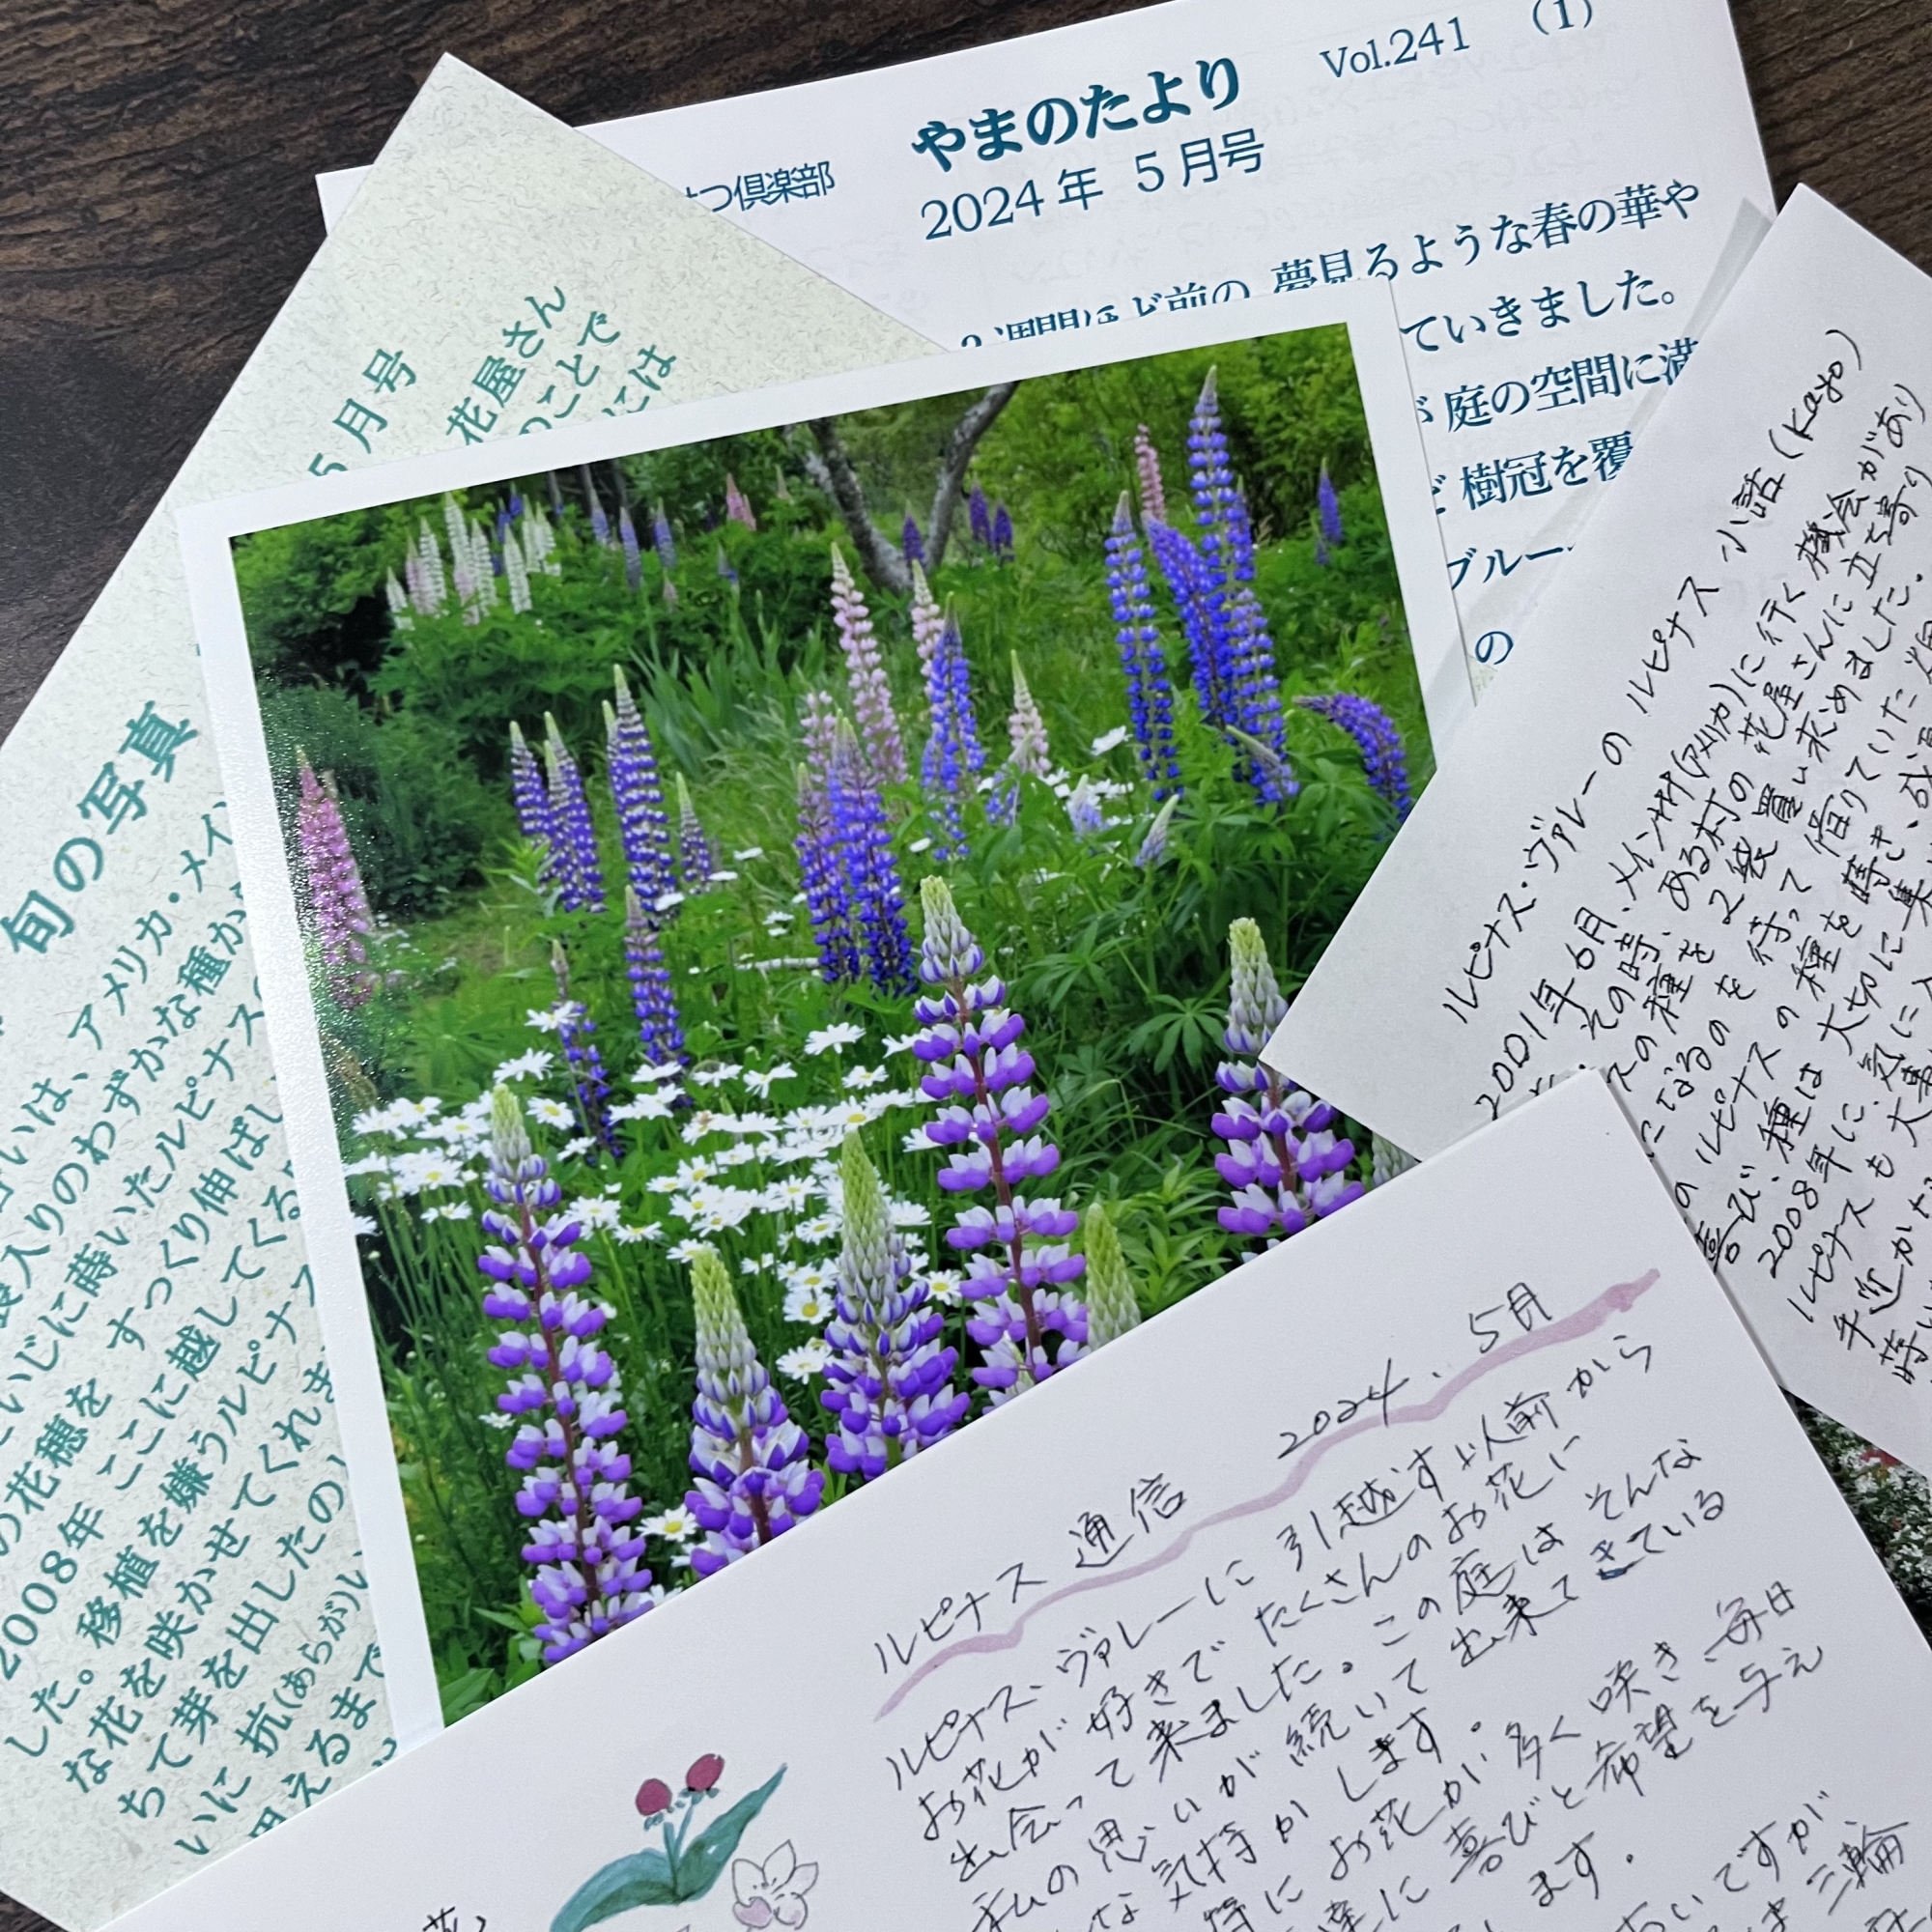 やまのたより
Vol.241 (1)
つ倶楽部
2024年 5月号
夢見るような春の華や
ていきました。
庭の空間に満
樹冠を覆
ブルー
の
5月号
花屋さん
のことで
には
旬の写真
いは、アメリカ・メイ
袋入りのわずかな種か
いじに蒔いたルピナス
の花穂を すっくり伸ばし
2008年 ここに越してくる
した。移植を嫌うルピナス
な花を咲かせてくれま
ちて芽を出したの
いに 抗(あらがい
思えるまで
ルピナス・ヴァレーの ルピナス 小話(Kayo)
2001年6月、メイン州(アメリカ)に行く機会があり
その時、ある村の花屋さんに立ち寄り
スの種を2袋買い求めました。
になるのを待って 借りていた
のルピナスの種を蒔き、
喜び、種は大切に
2008年に、気に入
ルピナスも大事
手近か
蒔い
ルピナス通信 2024.5月
ルピナス・ヴァレーに引越す以前から
お花が好きで たくさんのお花に
出会って来ました。この庭は そんな
私の思いが続いて 出来てきている
な気持がします。
特にお花が多く咲き、毎日
達に喜びと希望を与え
ます。
ですが
三輪
花